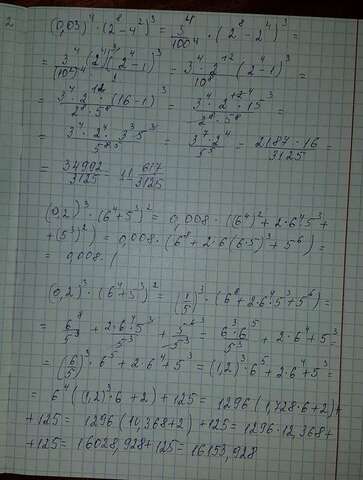 2.
(0,03)⁴ · (2⁸ - 4²)³ = 3⁴/100⁴ · (2⁸ - 2⁴)³ =
= 3⁴/(10²)⁴ (2⁴)³ (2⁴ - 1)³ = 3⁴ · 2¹²/10⁸ (2⁴ - 1)³ =
= 3⁴ · 2¹²/2⁸ · 5⁸ · (16 - 1)³ = 3⁴ · 2⁴ · 15³/5⁸ =
= 3⁴ · 2⁴ · 3³ 5³/5⁸ = 3⁷ · 2⁴/5⁵ = 2187 · 16/3125 =
= 34992/3125 = 11 617/3125
(0,2)³ · (6⁴ + 5³)² = 0,008 · ((6⁴)² + 2 · 6⁴ 5³ +
+ (5³)²) = 0,008 · (6⁸ + 2 · 6 (6 · 5)³ + 5⁶) =
= 0,008 · (
(0,2)³ · (6⁴ + 5³)² = (1/5)³ · (6⁸ + 2 · 6⁴ 5³ + 5⁶) =
= 6⁸/5³ + 2 · 6⁴ · 5³/5³ + 5⁶/5³ = 6³ · 6⁵/5³ + 2 · 6⁴ + 5³ =
= (6/5)³ · 6⁵ + 2 · 6⁴ + 5³ = (1,2)³ · 6⁵ + 2 · 6⁴ + 5³ =
= 6⁴ ((1,2)³ · 6 + 2) + 125 = 1296 (1,728 · 6 + 2) +
+ 125 = 1296 (10,368 + 2) + 125 = 1296 · 12,368 +
+ 125 = 16028,928 + 125 = 16153,928